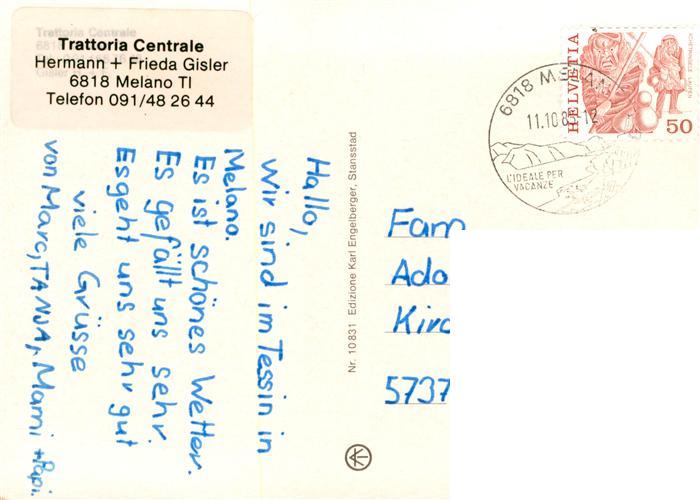 Trattoria Centrale
Hermann + Frieda Gisler
6818 Melano TI
Telefon 091/48 26 44
Hallo,
wir sind im Tessin in
Melano.
Es ist schönes Wetter.
Es gefällt uns sehr.
Es geht uns sehr gut
viele Grüsse
von Marc, TANJA, Mami + Papi.
Nr. 10 831 Edizione Karl Engelberger, Stansstad
HELVETIA
50
6818
11.10.8
12
L'IDEALE PER
VACANZE
Fam
Ado
Kirc
5737